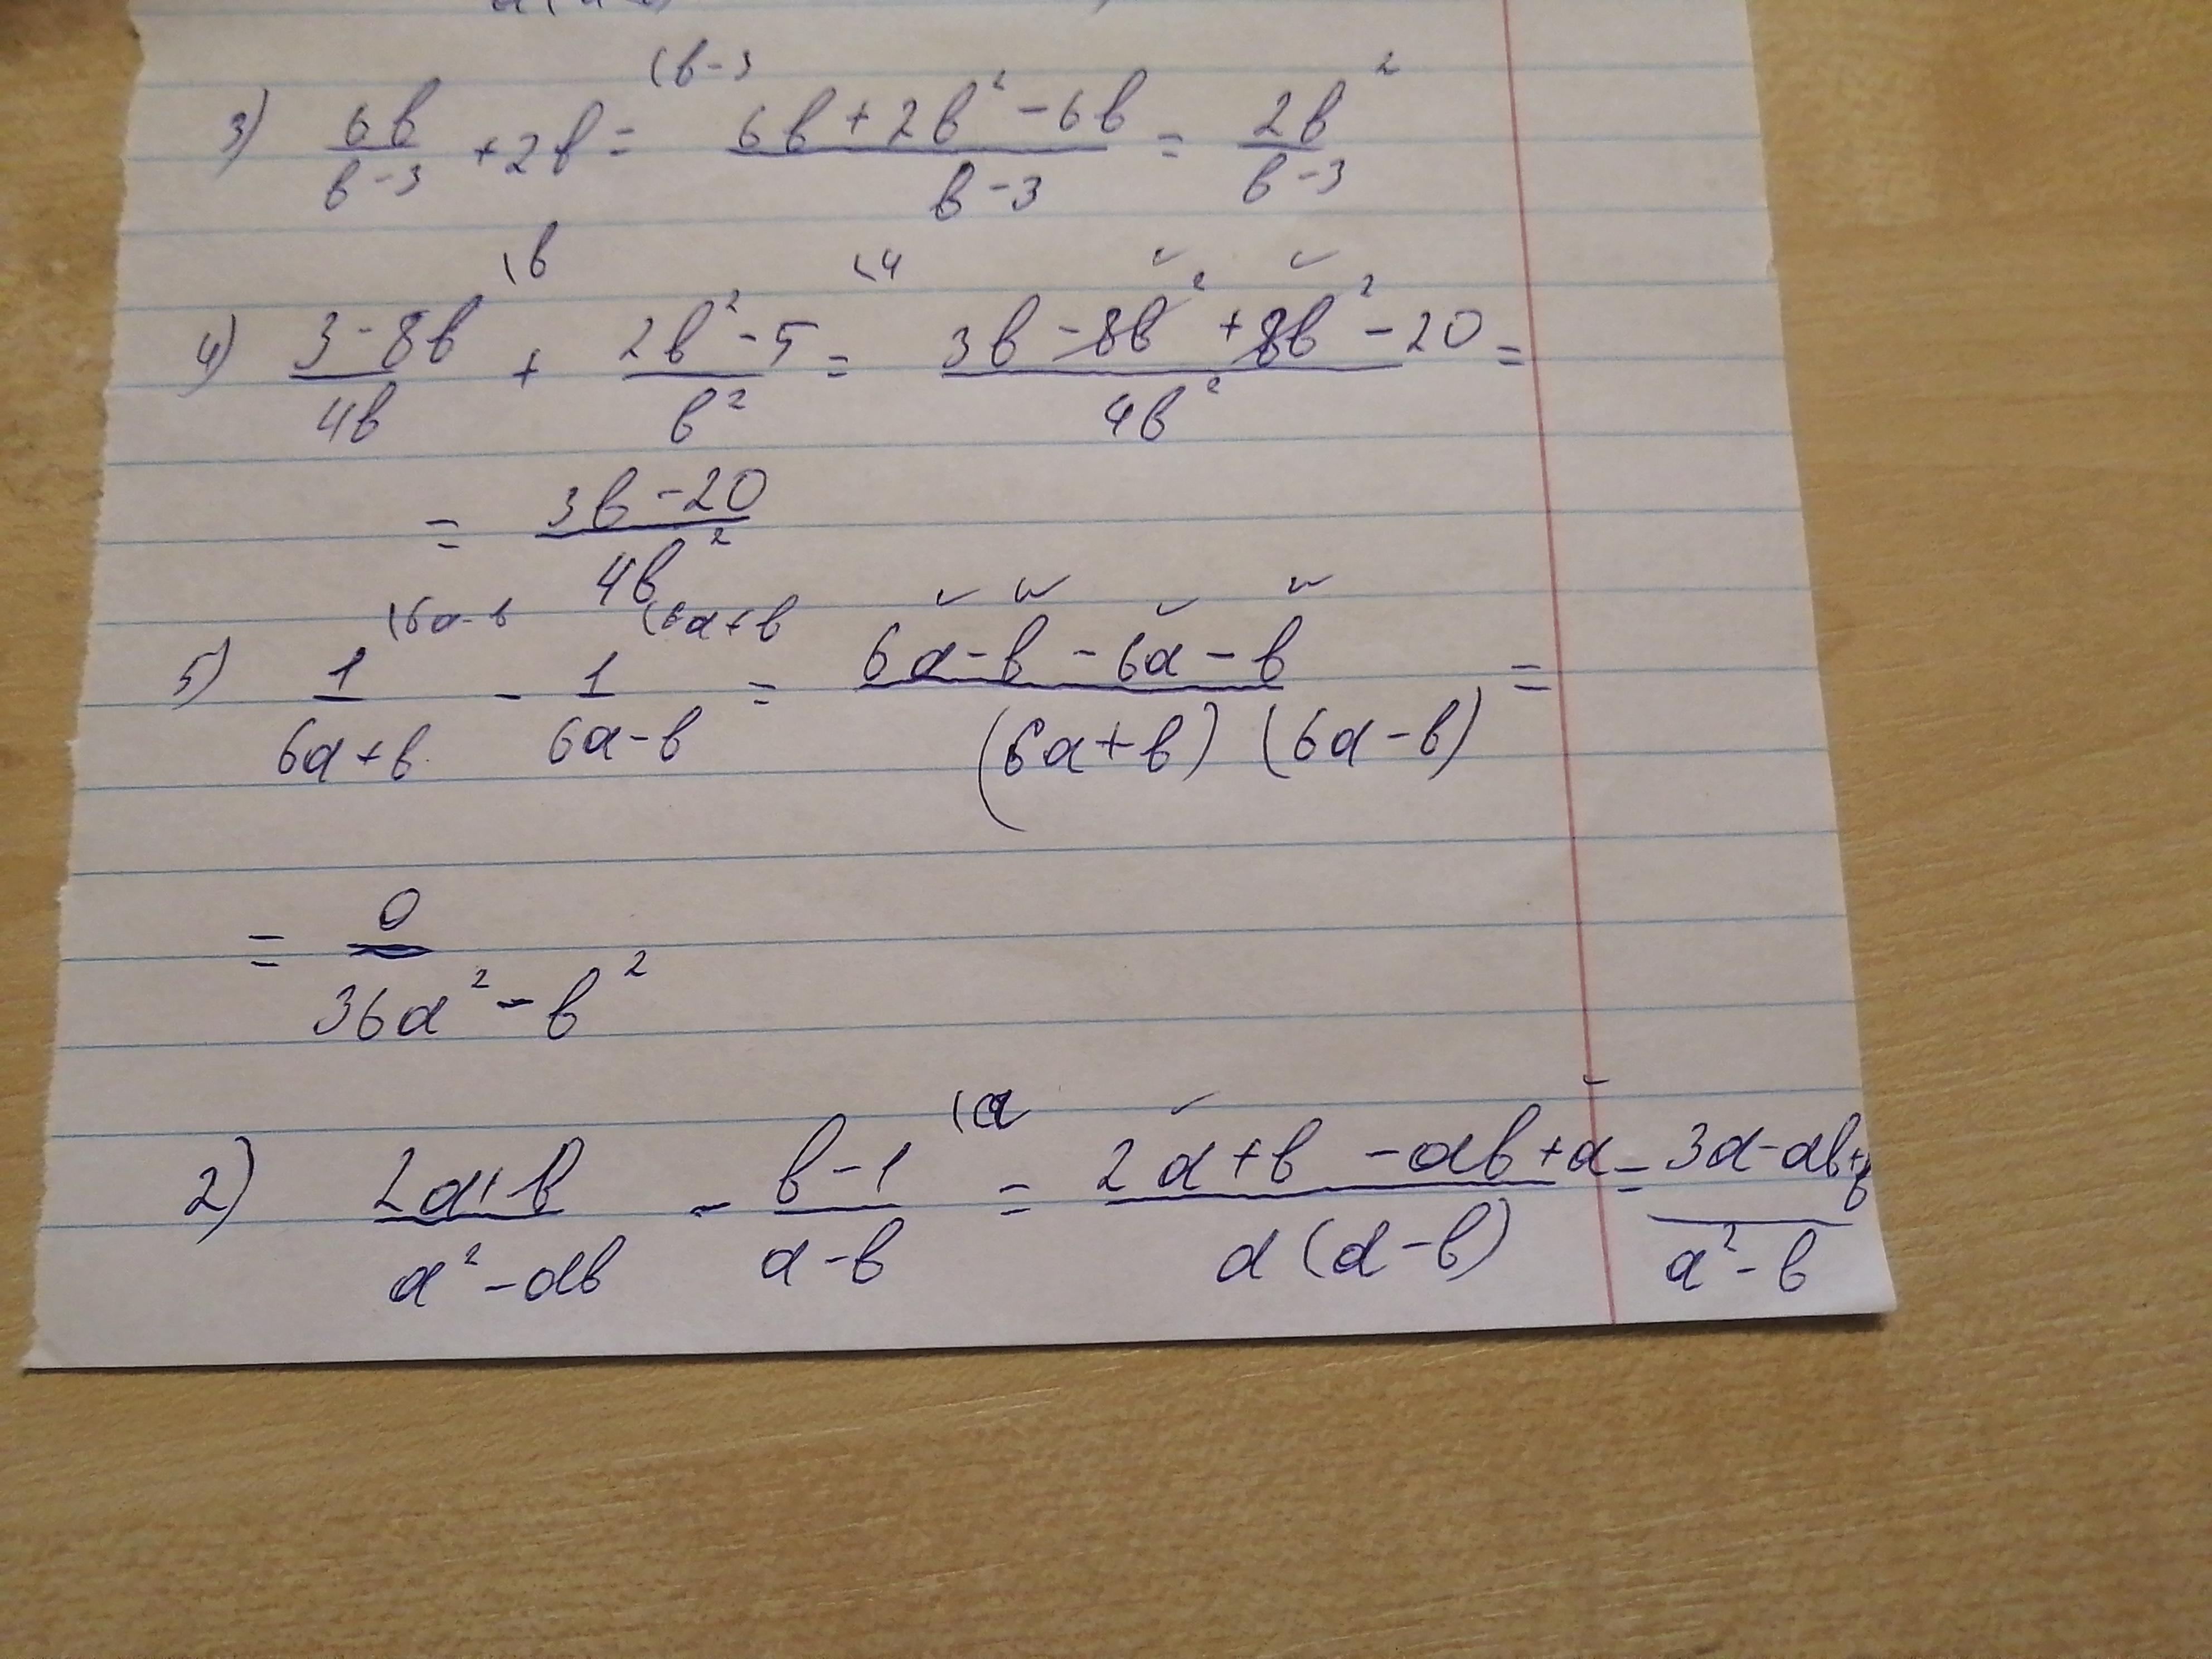 3) 6b/(b-3) + 2b \(b-3 = (6b+2b²-6b)/(b-3) = 2b²/(b-3)
4) (3-8b)/4b \b + (2b²-5)/b² \4 = (3b-8b²+8b²-20)/4b² =
= (3b-20)/4b²
5) 1/(6a+b) \6a-b - 1/(6a-b) \6a+b = (6a-b-6a-b)/((6a+b)(6a-b)) =
= 0/(36a²-b²)
2) (2a+b)/(a²-ab) - (b-1)/(a-b) \a = (2a+b-ab+a)/(a(a-b)) = (3a-ab+b)/(a²-b)